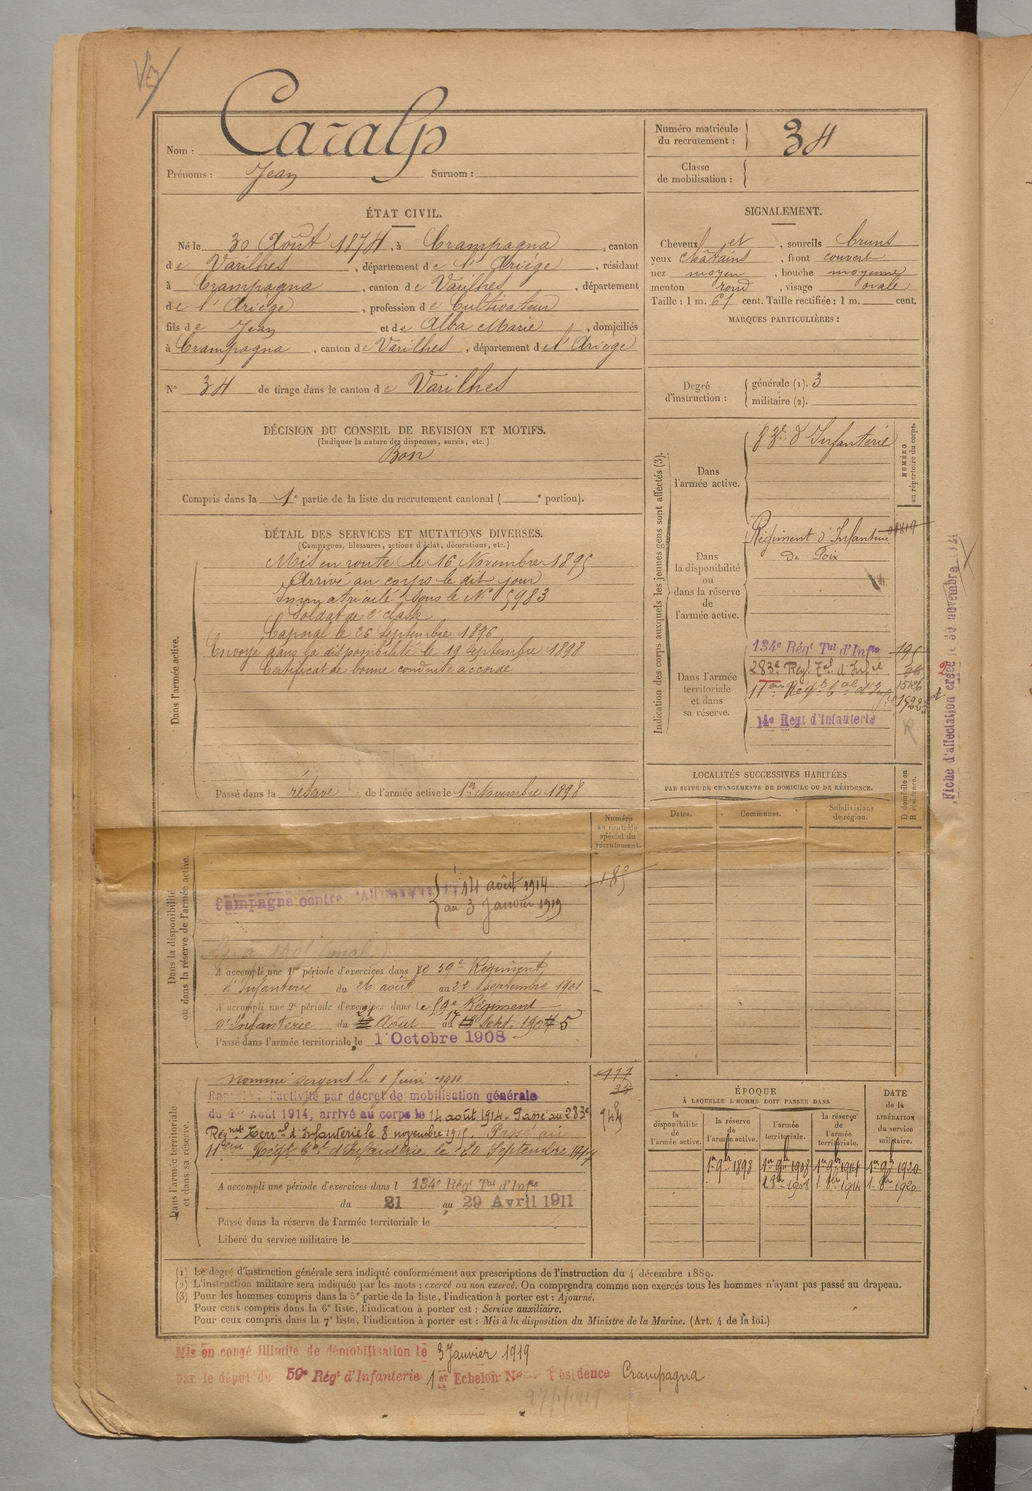 Caralp
Nom :
Prénoms : Jean Surnom :
Numéro matricule du recrutement : 34
Classe de mobilisation :
ÉTAT CIVIL.
Né le 30 Août 1874, à Crampagna, canton
de Varilhes, département de l'Ariège, résidant
à Crampagna, canton de Varilhes, département
de l'Ariège, profession de Cultivateur
fils de Jean et de Alba Marie, domiciliés
à Crampagna, canton de Varilhes, département de l'Ariège
N° 34 de tirage dans le canton de Varilhes
SIGNALEMENT.
Cheveux et, sourcils bruns
yeux châtains, front couvert
nez moyen, bouche moyenne
menton rond, visage ovale
Taille : 1 m. 61 cent. Taille rectifiée : 1 m. cent.
MARQUES PARTICULIÈRES :
Degré d'instruction : générale (1). 3
militaire (2).
DÉCISION DU CONSEIL DE REVISION ET MOTIFS.
(Indiquer la nature des dispenses, sursis, etc.)
Bon
Compris dans la 1e partie de la liste du recrutement cantonal ( e portion).
DÉTAIL DES SERVICES ET MUTATIONS DIVERSES.
(Campagnes, blessures, actions d'éclat, décorations, etc.)
Dans l'armée active.
Mis en route le 16 Novembre 1895
Arrivé au corps le dit jour
Immatriculé sous le N° 5983
Soldat de 2e classe
Caporal le 26 septembre 1896
Envoyé dans la disponibilité le 19 septembre 1898
Certificat de bonne conduite accordé
Passé dans la réserve de l'armée active le 1er Novembre 1898
Indication des corps auxquels les jeunes gens sont affectés (3).
NUMÉRO au répertoire du corps.
Dans l'armée active.
d'Infanterie
Dans la disponibilité ou dans la réserve de l'armée active.
Régiment d'Infanterie
de Foix
Dans l'armée territoriale et dans sa réserve.
134e Rég t Tal d'Infie
283e Regt Tal d'Infie
14e Regt d'Infanterie
Fiche d'affectation créée le 30 novembre
LOCALITÉS SUCCESSIVES HABITÉES
PAR SUITE DE CHANGEMENTS DE DOMICILE OU DE RÉSIDENCE.
Dates.
Communes.
Subdivisions de région.
D domicile ou R résidence.
Numéro au contrôle spécial du recrutement.
Dans la disponibilité ou dans la réserve de l'armée active.
185
Campagne contre l'Allemagne du 14 août 1914
au 3 Janvier 1919
A accompli une 1re période d'exercices dans le 59e Régiment
d'Infanterie du 26 août au 22 Septembre 1901
A accompli une 2e période d'exercices dans le 59e Régiment
d'Infanterie du Août au Sept. 1905
Passé dans l'armée territoriale le 1 Octobre 1908
Dans l'armée territoriale et dans sa réserve.
Nommé sergent le 1 Juin 1911
Rappelé à l'activité par décret de mobilisation générale
du 1er Août 1914, arrivé au corps le 14 août 1914. Passé au 283e
Régiment Terral d'Infanterie le 8 novembre 1915. Passé au
Régt d'Infanterie le 20 Septembre
944
A accompli une période d'exercices dans l 134e Rég t Tal d'Infie
du 21 au 29 Avril 1911
Passé dans la réserve de l'armée territoriale le
Libéré du service militaire le
ÉPOQUE
À LAQUELLE L'HOMME DOIT PASSER DANS
la disponibilité de l'armée active.
la réserve de l'armée active.
l'armée territoriale.
la réserve de l'armée territoriale.
DATE de la LIBÉRATION DU SERVICE militaire.
1er 9bre 1898
1er 9bre 1908
1er 9bre 1914
1er 9bre 1920
(1) Le degré d'instruction générale sera indiqué conformément aux prescriptions de l'instruction du 4 décembre 1889.
(2) L'instruction militaire sera indiquée par les mots : exercé ou non exercé. On comprendra comme non exercés tous les hommes n'ayant pas passé au drapeau.
(3) Pour les hommes compris dans la 5e partie de la liste, l'indication à porter est : Ajourné.
Pour ceux compris dans la 6e liste, l'indication à porter est : Service auxiliaire.
Pour ceux compris dans la 7e liste, l'indication à porter est : Mis à la disposition du Ministre de la Marine. (Art. 4 de la loi.)
Mis en congé illimité de démobilisation le 3 Janvier 1919
par le dépôt du 59e Rég t d'Infanterie 1er Echelon N° résidence Crampagna